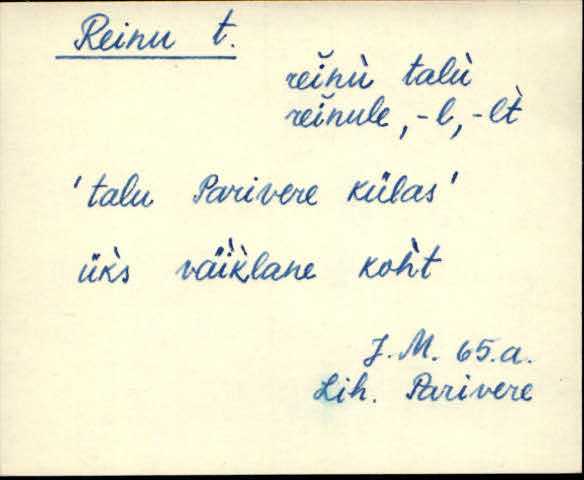 Reinu t.
reĭnù talù
reĭnule, -l, -lt̀
'talu Parivere külas'
ük̀s väìk̀lane koh̀t
J. M. 65. a.
Lih. Parivere